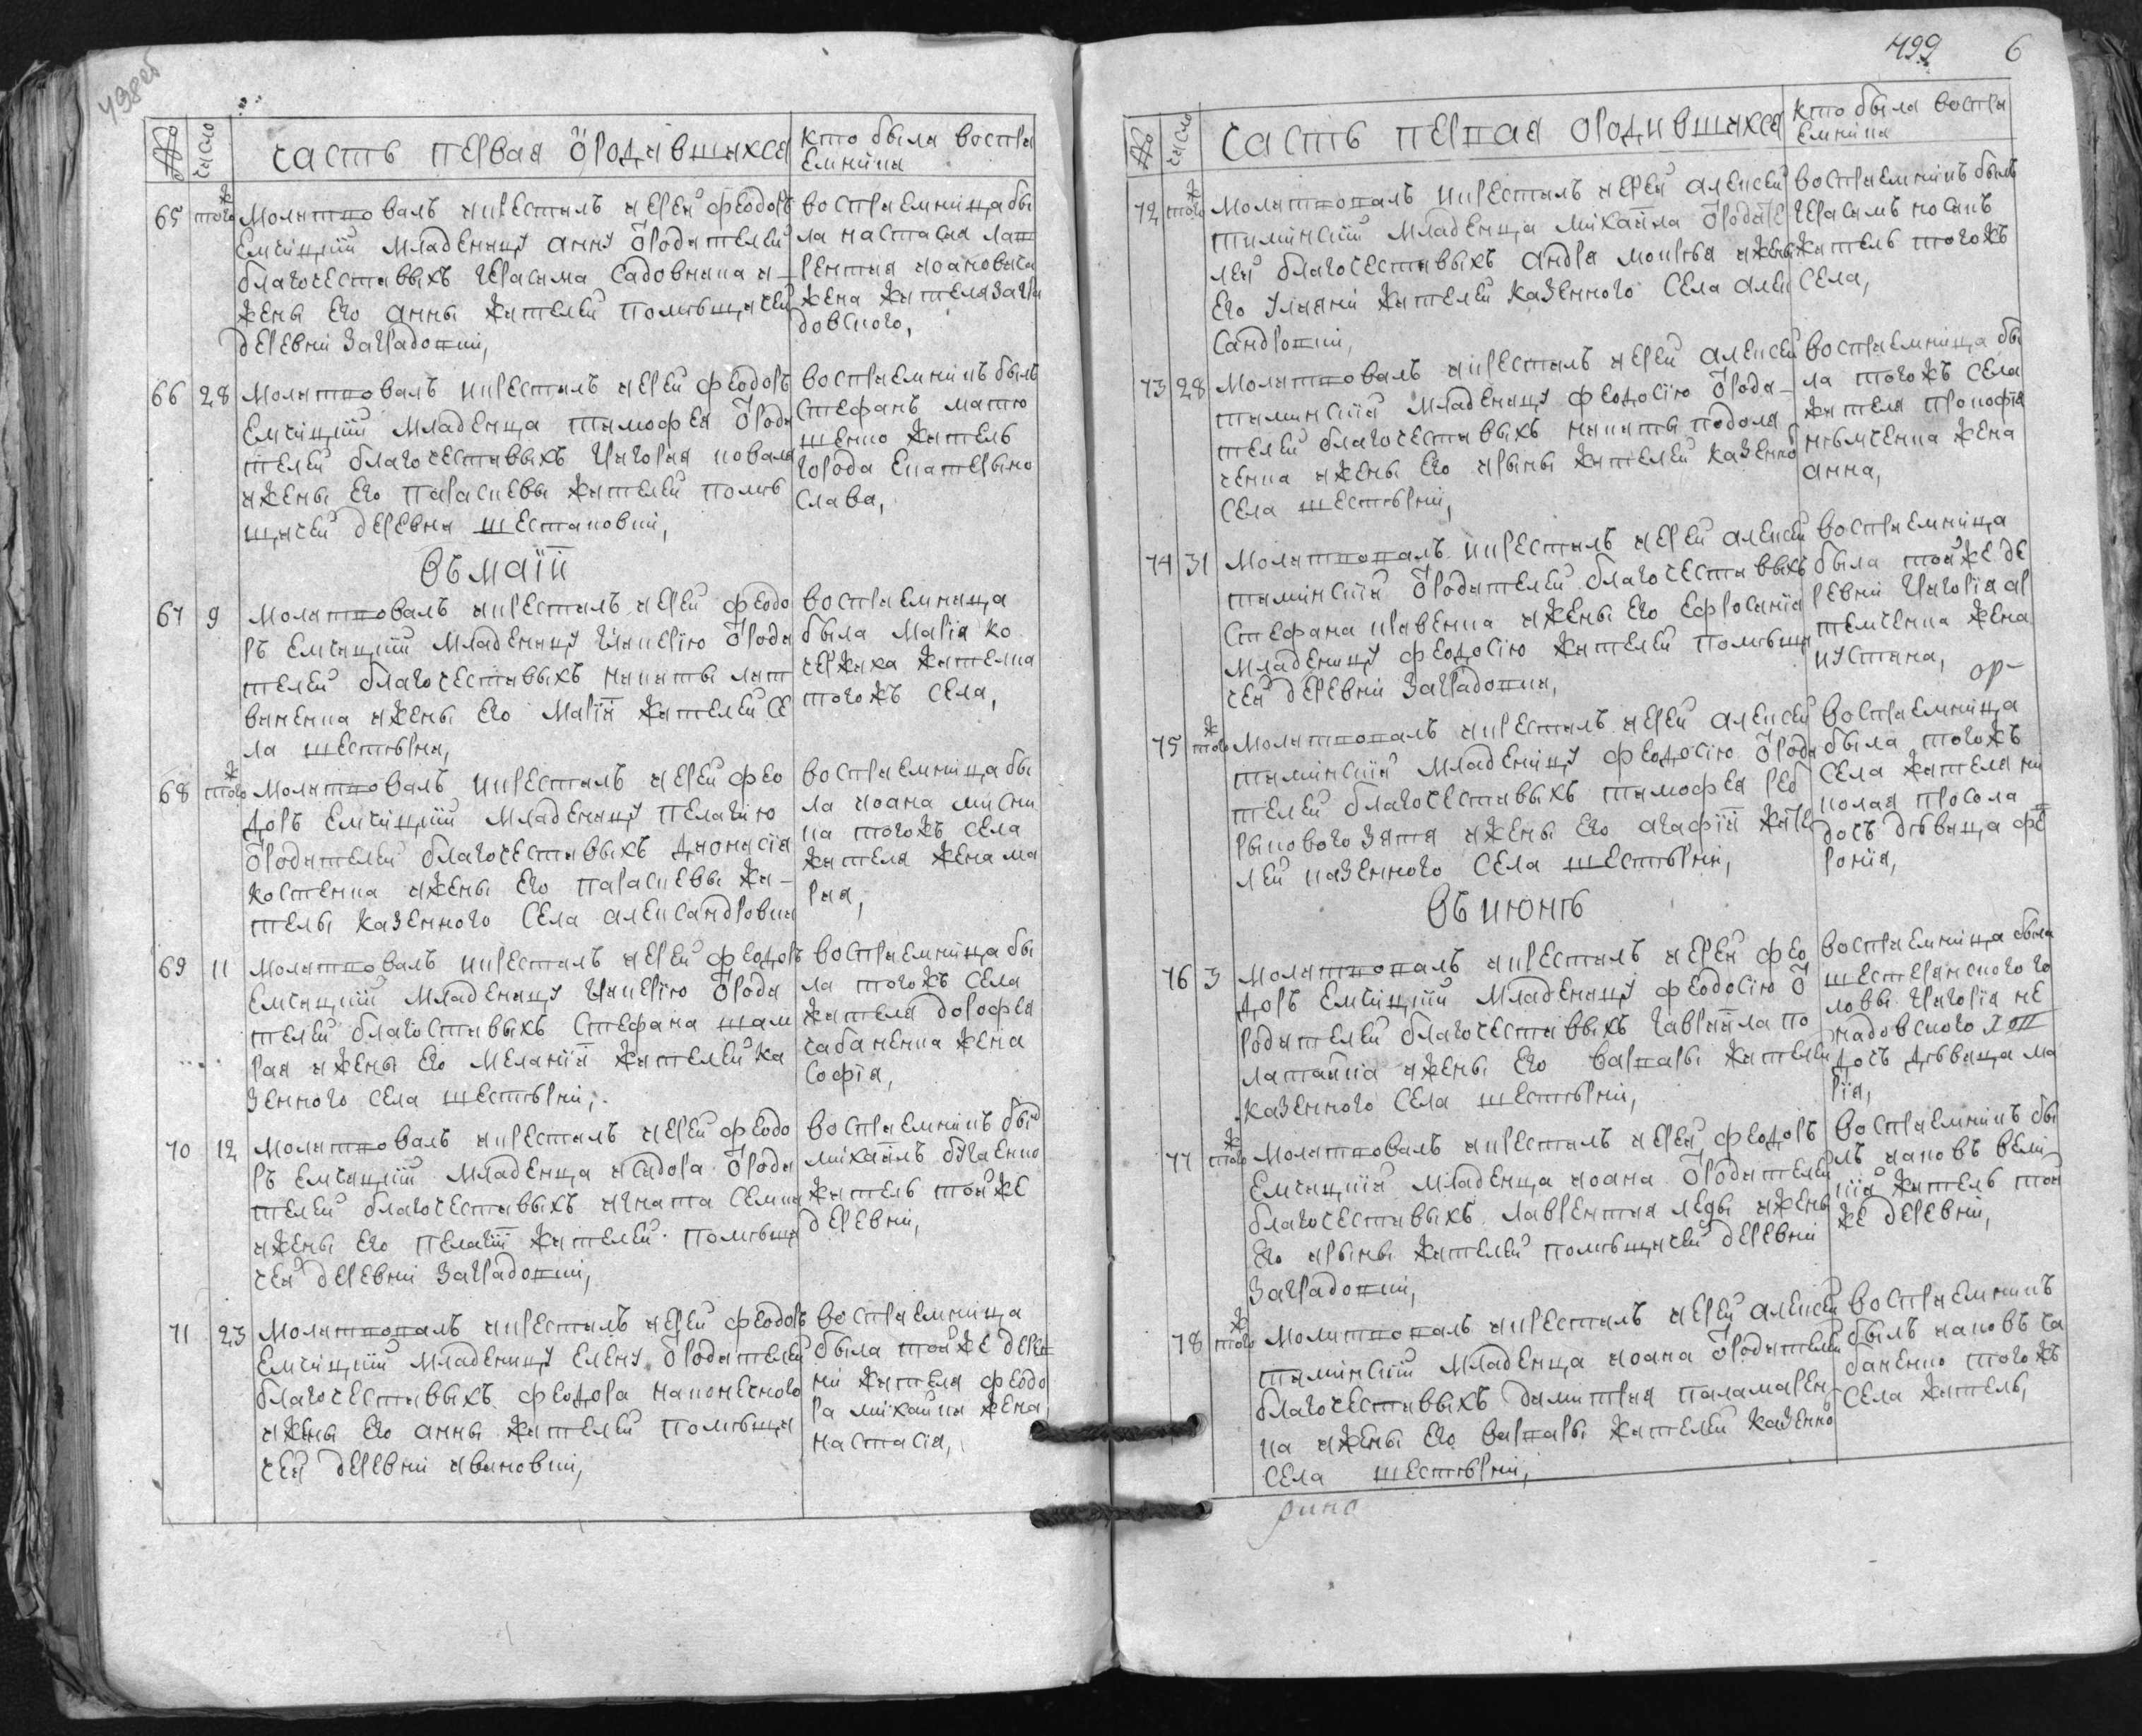 498об
№
число
часть первая ѡродившихся
кто были воспрі
емники
65 тогож
Молитвовалъ икрестилъ иерей феодоръ
Емчицкій младеницу анну ѿродителей
благочестивыхъ герасима садовника и
жены его анны жителей помѣщичей
деревни Заградовки,
воспріемница бы
ла настасия лав
рентия иоановича
жена жителя загра
довского,
66 28
Молитвовалъ икрестилъ иерей феодоръ
Емчицкій младенца тимофея ѿроди
телей благочестивыхъ григория коваля
ижены его параскевы жителей помѣ
щичей деревни шестаковки,
воспріемникъ былъ
стефанъ матю
шенко житель
города екатерино
слава,
въ маіи
67 9
Молитвовалъ икрестилъ иерей феодо
ръ емчицкій младеницу гликерію ѿроди
телей благочестивыхъ никиты лит
виненка ижены его маріи жителей се
ла шестѣрни,
воспріемница
была марія ко
чержиха жителка
тогожъ села,
68 тогож
Молитвовалъ икрестилъ иерей фео
доръ емчицкій младеницу пелагию
ѿродителей благочестивыхъ дионисія
костенка ижены его параскевы жи
телы казенного села александровки
воспріемница бы
ла иоана мисни
ка тогожъ села
жителя жена ма
рия,
69 11
Молитвовалъ икрестилъ иерей феодоръ
Емчицкій младеницу гликерію ѿроди
телей благостивыхъ стефана шам
рая ижены его меланіи жителей ка
зенного села шестѣрни,
воспріемница бы
ла тогожъ села
жителя дорофея
чабаненка жена
софія,
70 12
Молитвовалъ икрестилъ иерей феодо
ръ емчицкій младенца исидора ѿроди
телей благочестивыхъ игната семки
ижены его пелагіи жителей помѣщи
чей деревни заградовки,
воспріемникъ был
михаилъ бугаенко
житель тойже
деревни,
71 23
Молитвовалъ икрестилъ иерей феодоръ
Емчицкій младеницу елену ѿродителей
благочестивыхъ феодора наконечного
ижены его анны жителей помѣщи
чей деревни ивановки,
воспріемница
была тойже дерев
ни жителя феодо
ра михайки жена
настасія,
499 6
№
число
часть первая ѡродившихся
кто были воспрі
емники
72 тогож
Молитвовалъ икрестилъ иерей алексей
тиминскій младенца михаила ѿродите
лей благочестивыхъ андрея мокрия ижены
его улияни жителей казенного села алек
сандровки,
воспріемникъ былъ
герасимъ носикъ
житель тогожъ
села,
73 28
Молитвовалъ икрестилъ иерей алексей
тиминскій младеницу феодосію ѿроди
телей благочестивыхъ никиты подоля
ченка ижены его ирины жителей казенно
села шестѣрни,
воспріемница бы
ла тогожъ села
жителя прокофія
нѣмченка жена
анна,
74 31
Молитвовалъ икрестилъ иерей алексей
тиминскій ѿродителей благочестивыхъ
стефана кравенка ижены его ефросиніи
младеницу феодосію жителей помѣщи
чей деревни заградовки,
воспріемница
была тойже де
ревни григорія ар
темченка жена
иустина,
75 тогож
Молитвовалъ икрестилъ иерей алексей
тиминскій младеницу феодосію ѿроди
телей благочестивыхъ тимофея реб
рыкового зятя ижены его агафіи жите
лей казенного села шестѣрни,
воспріемница
была тогожъ
села жителя ни
колая просола
дочь дѣвица фе
ронія,
въ июнѣ
76 3
Молитвовалъ икрестилъ иерей фео
доръ емчицкій младеницу феодосію ѿ
родителей благочестивыхъ гавріила по
латайка ижены его варвары жителей
казенного села шестѣрни,
воспріемница была
шестерянского го
ловы григорія не
надовского
дочь дѣвица ма
рія,
77 тогож
Молитвовалъ икрестилъ иерей феодоръ
Емчицкій младенца иоана ѿродителей
благочестивыхъ лаврентия леды ижены
его ирины жителей помѣщичей деревни
заградовки,
воспріемникъ бы
лъ яковъ вели
кій житель той
же деревни,
78 тогож
Молитвовалъ икрестилъ иерей алексей
тиминскій младенца иоана ѿродителей
благочестивыхъ димитрия паламарен
ка ижены его варвары жителей казенно
села шестѣрни,
воспріемникъ
былъ яковъ ча
баненко тогожъ
села житель,